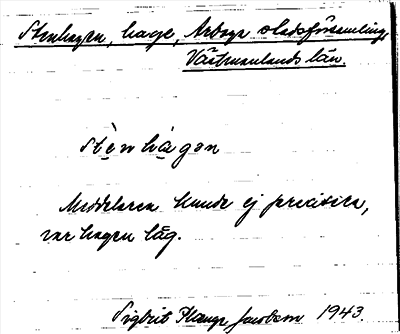 Stenhagen, hage, Arboga stadsförsamling,
Västmanlands län.
stènhàgən
Meddelaren kunde ej precisera,
var hagen låg.
Sigbrit Jacobson 1943.